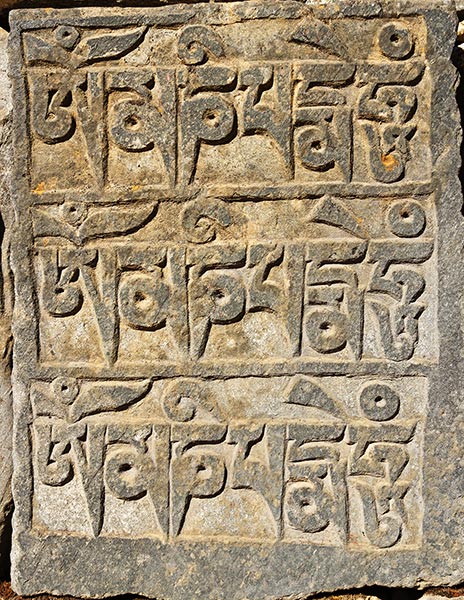 ཨོཾམཎིཔདྨེཧཱུཾ
ཨོཾམཎིཔདྨེཧཱུཾ
ཨོཾམཎིཔདྨེཧཱུཾ